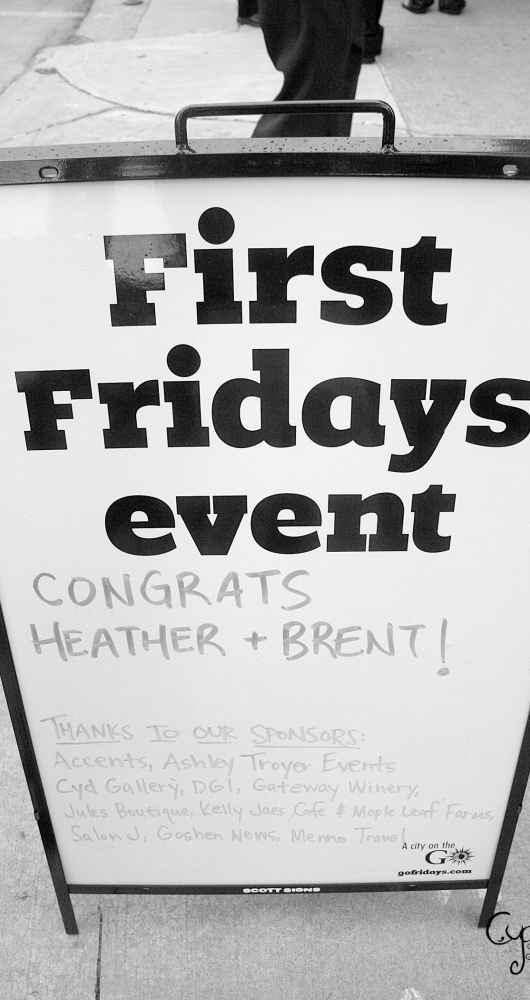 First
Fridays
event
CONGRATS
HEATHER + BRENT!
THANKS TO OUR SPONSORS:
Accents, Ashley Troyer Events
Cyd Gallery, DG1, Gateway Winery,
Jules Boutique, Kelly Jaes Cafe & Maple Leaf Farms,
Salon J, Goshen News, Menno Travel
A city on the
GO
gofridays.com
SCOTT SIGNS